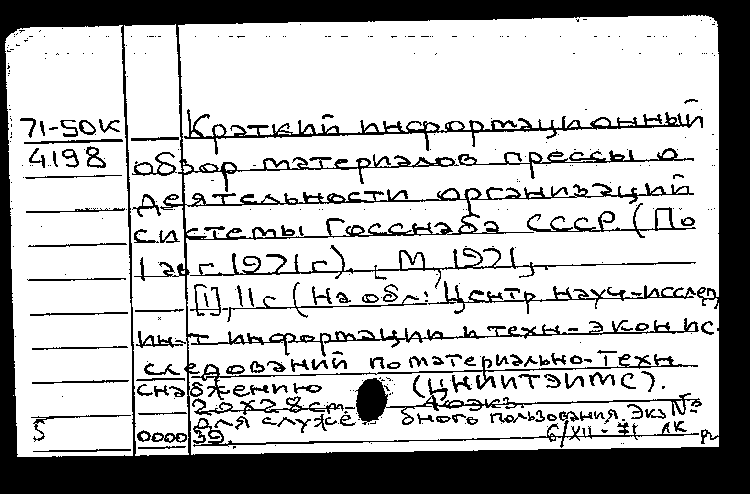 71-50К Краткий информационный
4198 обзор материалов прессы о
деятельности организаций
системы Госснаба СССР. (По
1 авг. 1971 г). [М, 1971].
[1], 11 с (На обл: Центр науч-исслед.
ин-т информации и техн.-экон ис.
следований по материально-техн
снабжению (ЦНИИТЭИМС).
20х28 cm. 40 экз.
Для служебного пользования. Экз №
S 0000 39. 6/XII-71 ЛК